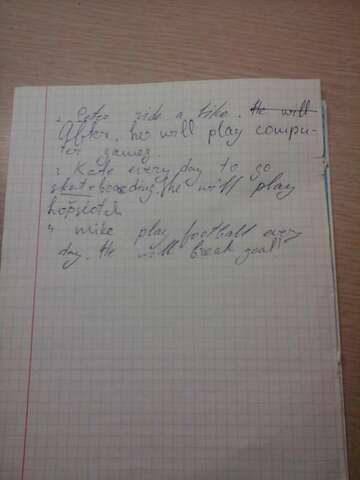 2. Peter ride a bike. He will
After, her will play compu-
ter games
3 Kate every day to go
skateboarding. She will play
hopscotch
4 Mike play football every
day. He will break goal!